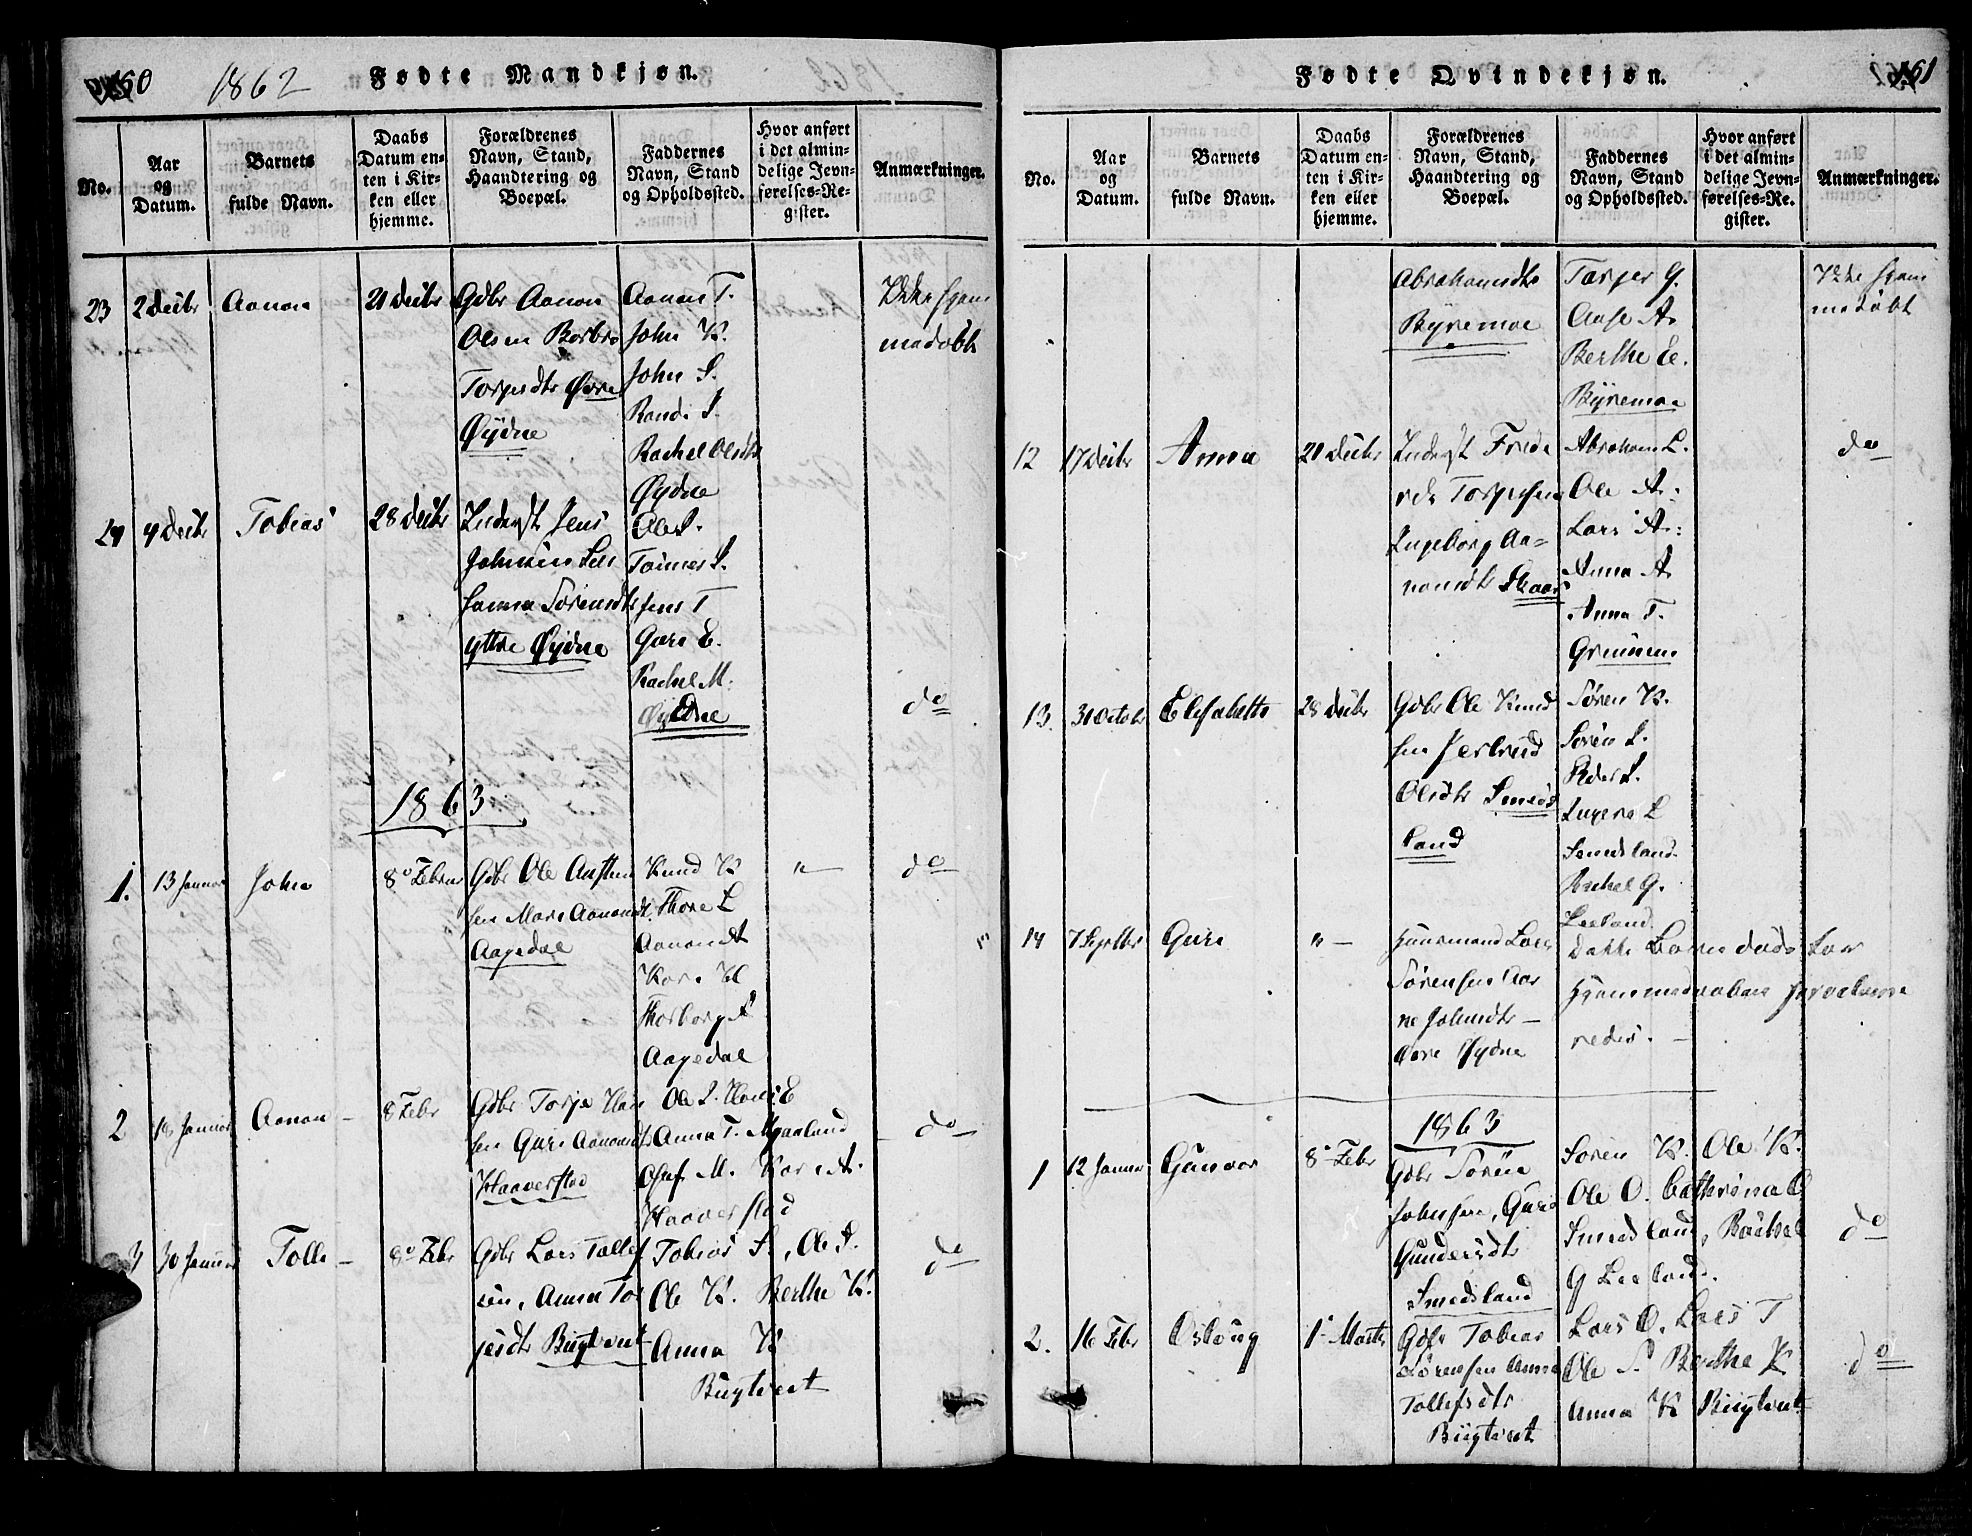 160
1862
Fødte Mandkjøn.
No.
Aar
og
Datum.
Barnets
fulde Navn.
Daabs
Datum en-
ten i Kir-
ken eller
hjemme.
Forældrenes
Navn, Stand,
Haandtering og
Boepæl.
Faddernes
Navn, Stand
og Opholdssted.
Hvor anført
i det almin-
delige Jevn-
førelses-Re-
gister.
Anmærkninger.
23 2 Decbr Aanon 21 Decbr
Gdbr Aanon
Olsen Barbro
Torjesdtr Øvre
Øydne
Aanon T.
John K.
John S.
Randi S.
Rachel Olsdtr
Øydne
Ikke hjem
medøbt
24 4 Decbr Tobias 28 Decbr
Inderst Jens
Johnsen
Sørensdtr
yttre Øydne
Ole S.
Jens T
Guri E.
Rachel M.
Øydne
do
1863
1. 13 Januar John 8 Febr
Gdbr Ole Austen
sen Mari Aanonsdt.
Aagedal
Knud K
Thore L
Aanon A
Kari H
Thorborg A
Aagedal
" —
do
2 18 Januar Aanon — 8 Febr
Gdbr Torje Han
sen Guri Aanonsdtr
Haaverstad
Ole S. Hans E
Anna T. Myraland
Olaf M. Kari A.
Haaverstad
do
3 30 Januar Tolle — 8 Febr
Gdbr Lars Tollef
sen, Anna Tor
jesdtr Bugtvert
Tobias S, Ole S.
Ole K. Berthe K.
Anna K
Bugtvert
do
161
Fødte Qvindekjøn.
No.
Aar
og
Datum.
Barnets
fulde Navn.
Daabs
Datum en-
ten i Kir-
ken eller
hjemme.
Forældrenes
Navn, Stand,
Haandtering og
Boepæl.
Faddernes
Navn, Stand
og Opholdssted.
Hvor anført
i det almin-
delige Jevn-
førelses-Re-
gister.
Anmærkninger.
Abrahamsdtr
Byremoe
Torjer G.
Aase A.
Berthe E.
Byremoe
Ikke hjem
medøbt
12 17 Decbr Anna 21 Decbr
Inderst Frede
rik Torjesen
Ingeborg Aa-
nonsdtr Skaar
Abraham L.
Ole A.
Lars A.
Anna A.
Anna T.
do
13. 31 Octobr Elisabeth 28 Decbr
Gdbr Ole Knud
sen Jertrud
Olsdtr Smeds
land
Søren K.
Søren S.
Peder S.
Smedsland.
Rachel G.
Leeland
14 7 Septbr Guri " —
Huusmand Lars
Sørensen Aas
ne Johnsdtr —
Øvre Øydne
hjemmedaaben
neden. —
1863
1 12 Januar Gunvor 8 Febr
Gdbr Søren
Johnsen, Guri
Gundersdtr
Smedsland
Søren K. Ole K.
Ole O. Cathrina O
Smedsland, Rachel
G Leeland.
do
2. 16 Febr Osloug 1 Marts
Gdbr Tobias
Sørensen Anna
Tollefsdtr
Bugtvert
Lars O. Lars T
Ole S Berthe K
Anna K Bugtvert
do